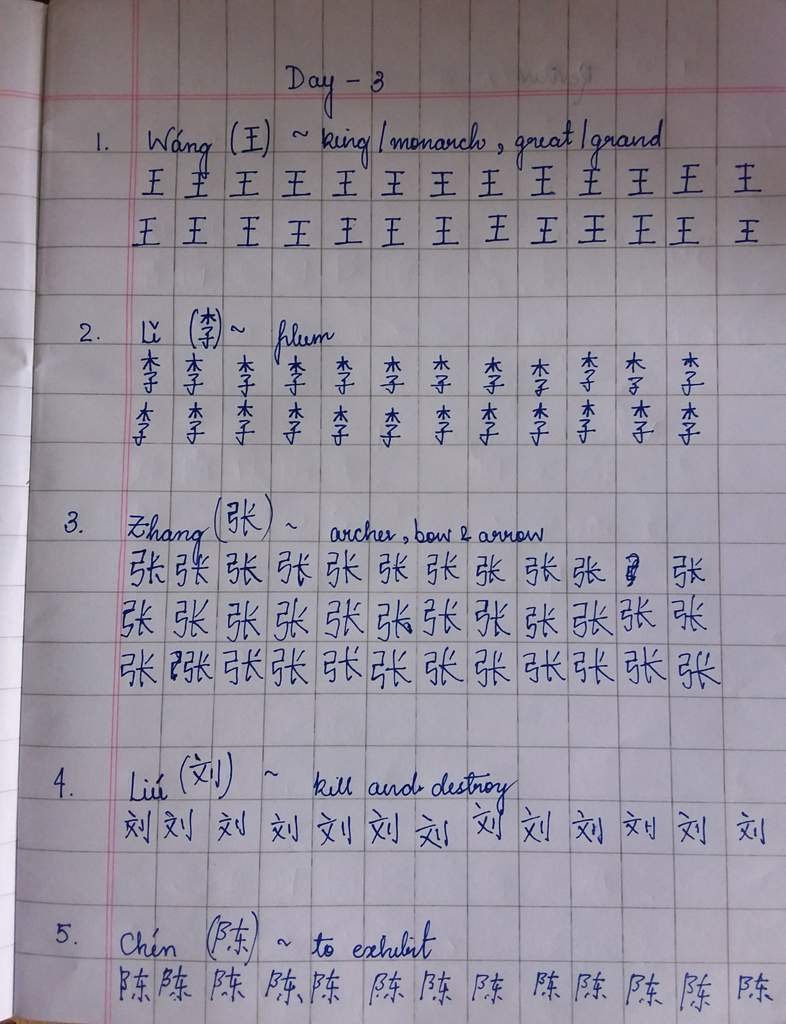 Day - 3
1. Wáng (王) ~ king/monarch, great/grand
王 王 王 王 王 王 王 王 王 王 王 王 王
王 王 王 王 王 王 王 王 王 王 王 王 王
2. Lǐ (李) ~ plum
李 李 李 李 李 李 李 李 李 李 李 李
李 李 李 李 李 李 李 李 李 李 李 李
3. Zhang (张) ~ archer, bow & arrow
张 张 张 张 张 张 张 张 张 张 张
张 张 张 张 张 张 张 张 张 张 张 张
张 张 张 张 张 张 张 张 张 张 张 张
4. Liú (刘) ~ kill and destroy
刘 刘 刘 刘 刘 刘 刘 刘 刘 刘 刘 刘 刘
5. Chén (陈) ~ to exhibit
陈 陈 陈 陈 陈 陈 陈 陈 陈 陈 陈 陈 陈